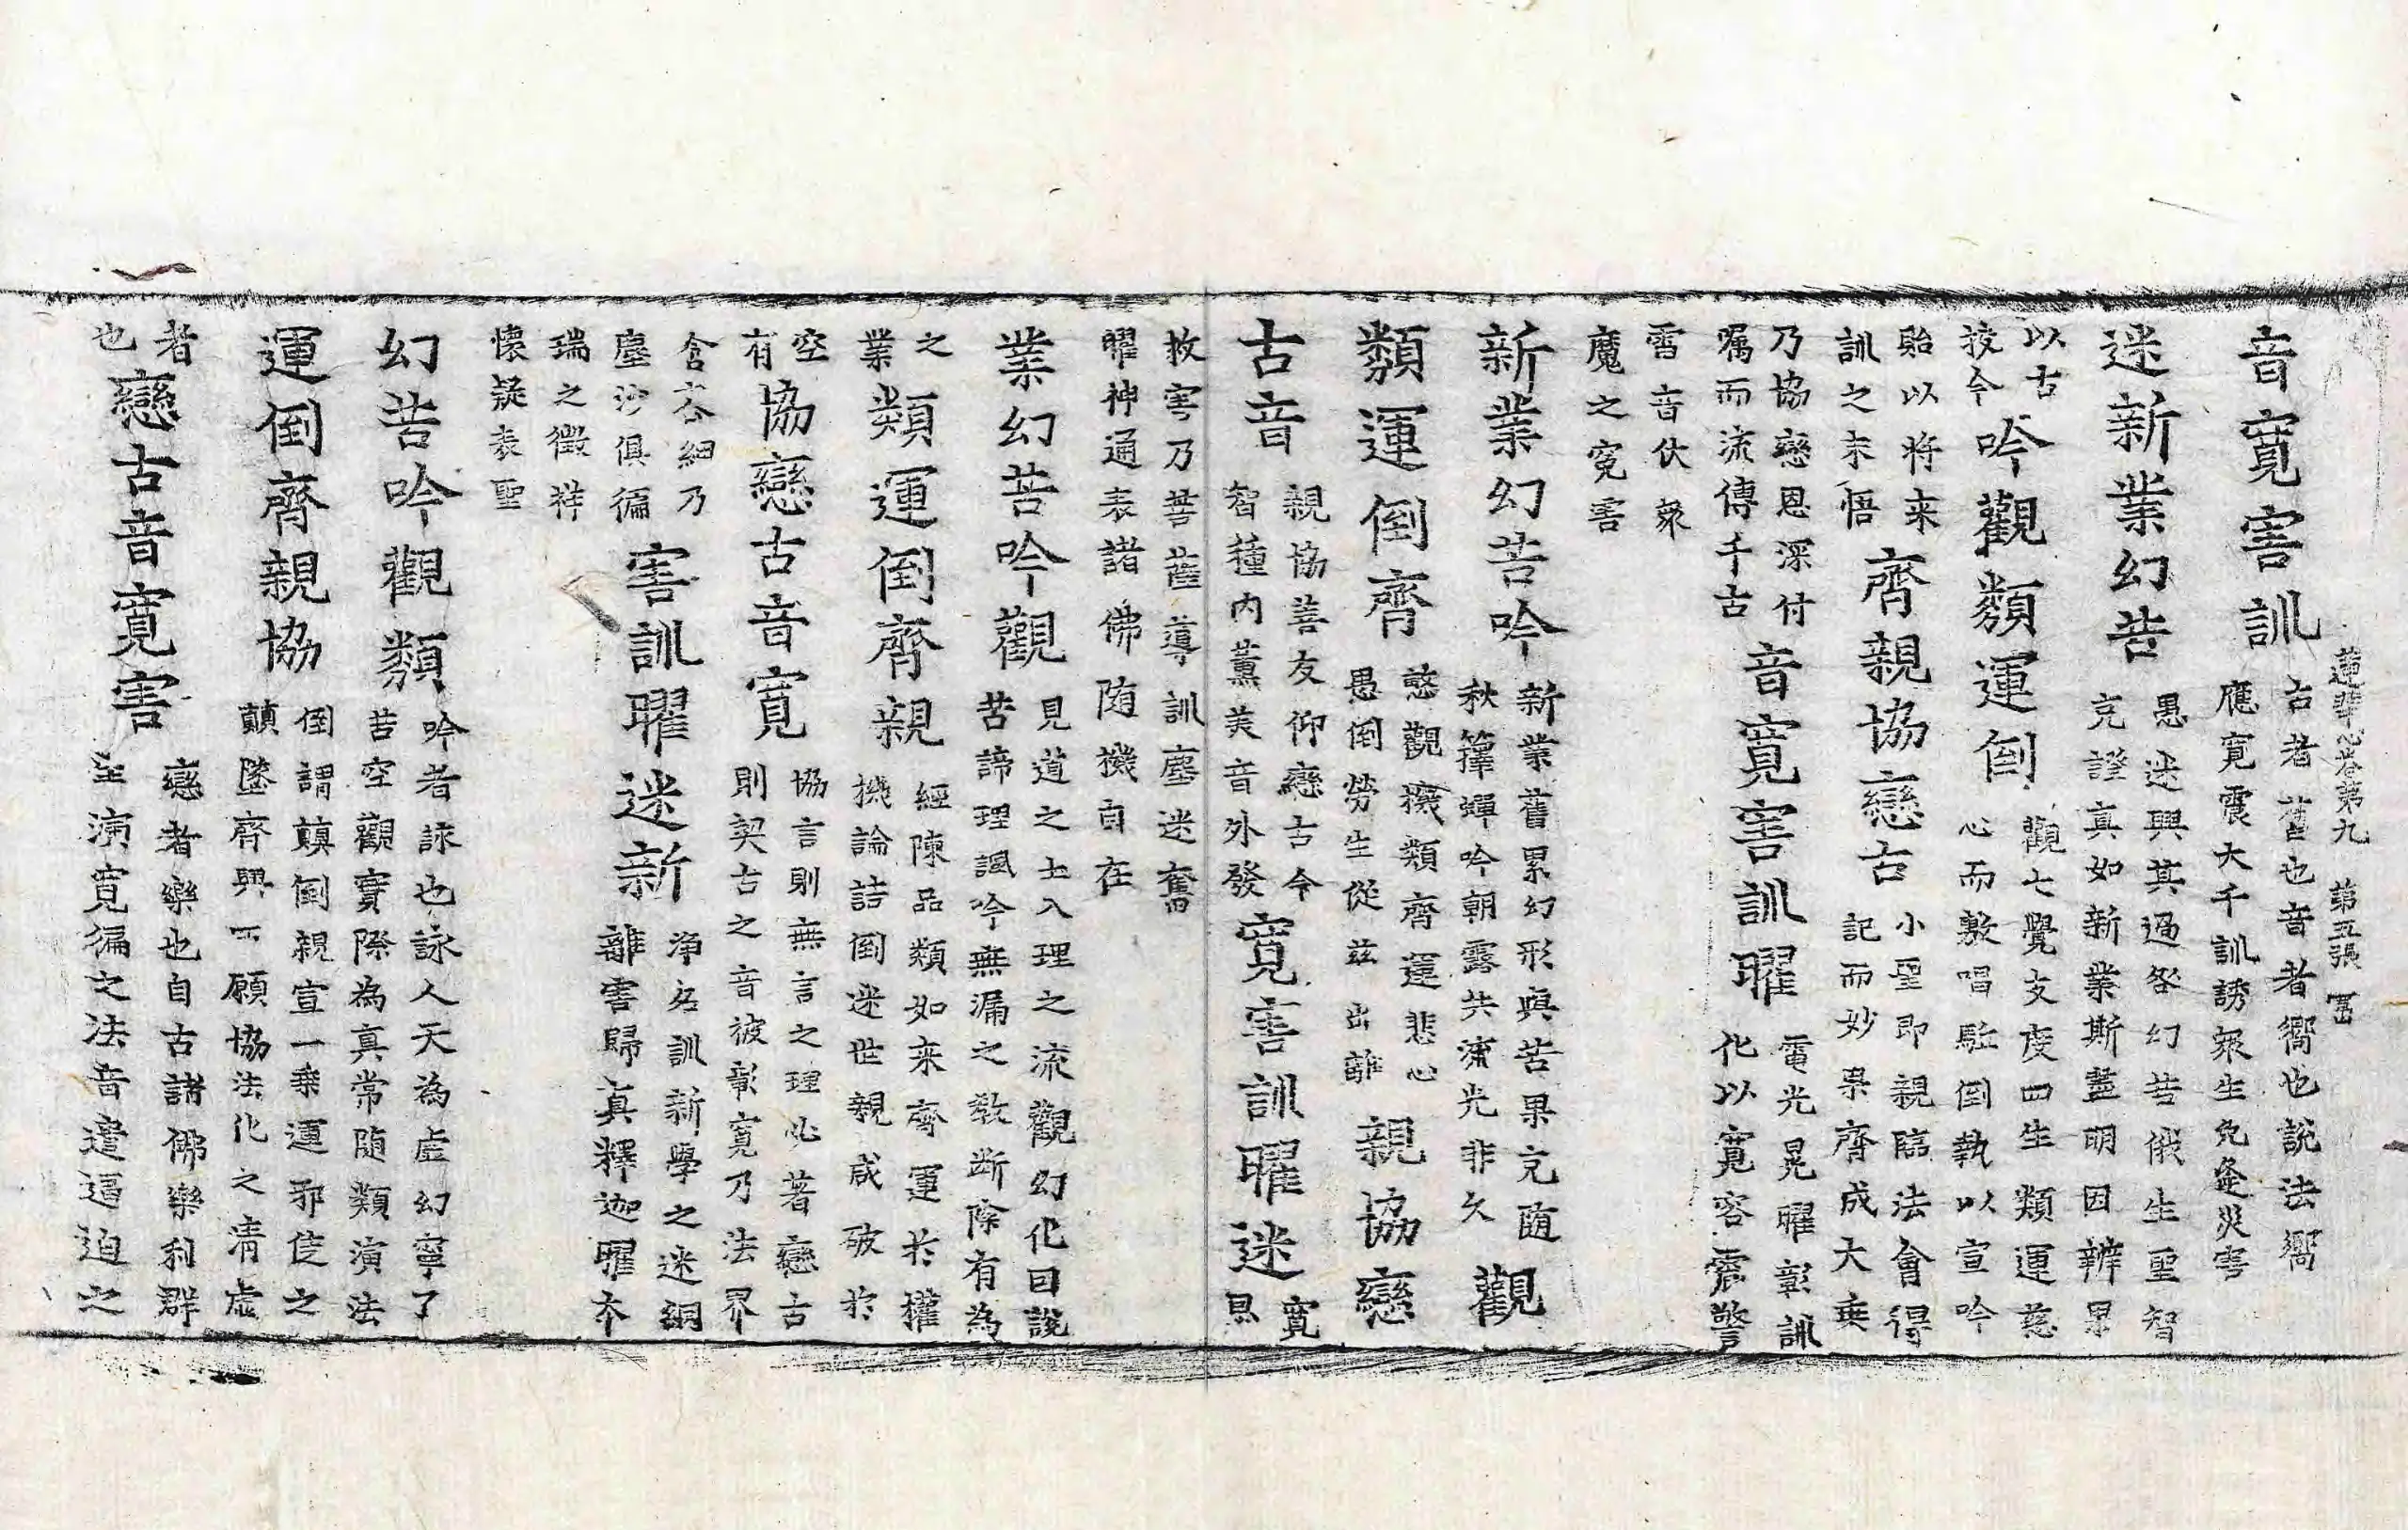 蓮華心卷第九 第五張 冨
音寬害訓
古者舊也音者嚮也說法嚮
應寬震大千訓誘衆生免逢災害
迷新業幻苦
愚迷興其過咎幻苦俄生聖智
克證真如新業斯盡明因辨果
以古
挍今
吟觀類運倒
觀七覺支度四生類運慈
心而敷唱駈倒執以宣吟
貽以將来
訓之未悟
齊親協戀古
小聖即親臨法會得
記而妙果齊成大乗
乃協戀恩深付
嘱而流傳千古
音寬害訓曜
電光晃曜彰訓
化以寬容震警
雷音伏衆
魔之寃害
新業幻苦吟
新業舊累幻形與苦果克随
秋籜蟬吟朝露共流光非久
觀
類運倒齊
慜觀機類齊運悲心
愚倒勞生從兹出離
親協戀
古音
親協善友仰戀古今
智種内薰美音外發
寬害訓曜迷
寬
恩
救害乃菩薩導訓塵迷奮
曜神通表諸佛随機自在
業幻苦吟觀
見道之士入理之流觀幻化曰說
苦諦理諷吟無漏之教断除有為
之
業
類運倒齊親
經陳品類如来齊運於權
機論詰倒迷世親咸破於
空
有
協戀古音寬
協言則無言之理必著戀古
則契古之音彼彰寬乃法界
含六合細乃
塵沙俱徧
害訓曜迷新
浄名訓新學之迷綱
離害歸真釋迦曜夲
瑞之徵祥
懷疑表聖
幻苦吟觀類
吟者詠也詠人天為虚幻寧了
苦空觀實際為真常随類演法
運倒齊親協
倒謂顛倒親宣一乗運邪徒之
顛墜齊興一願協法化之清虚
者
也
戀古音寬害
戀者樂也自古諸佛樂利群
生演寬徧之法音遣逼迫之